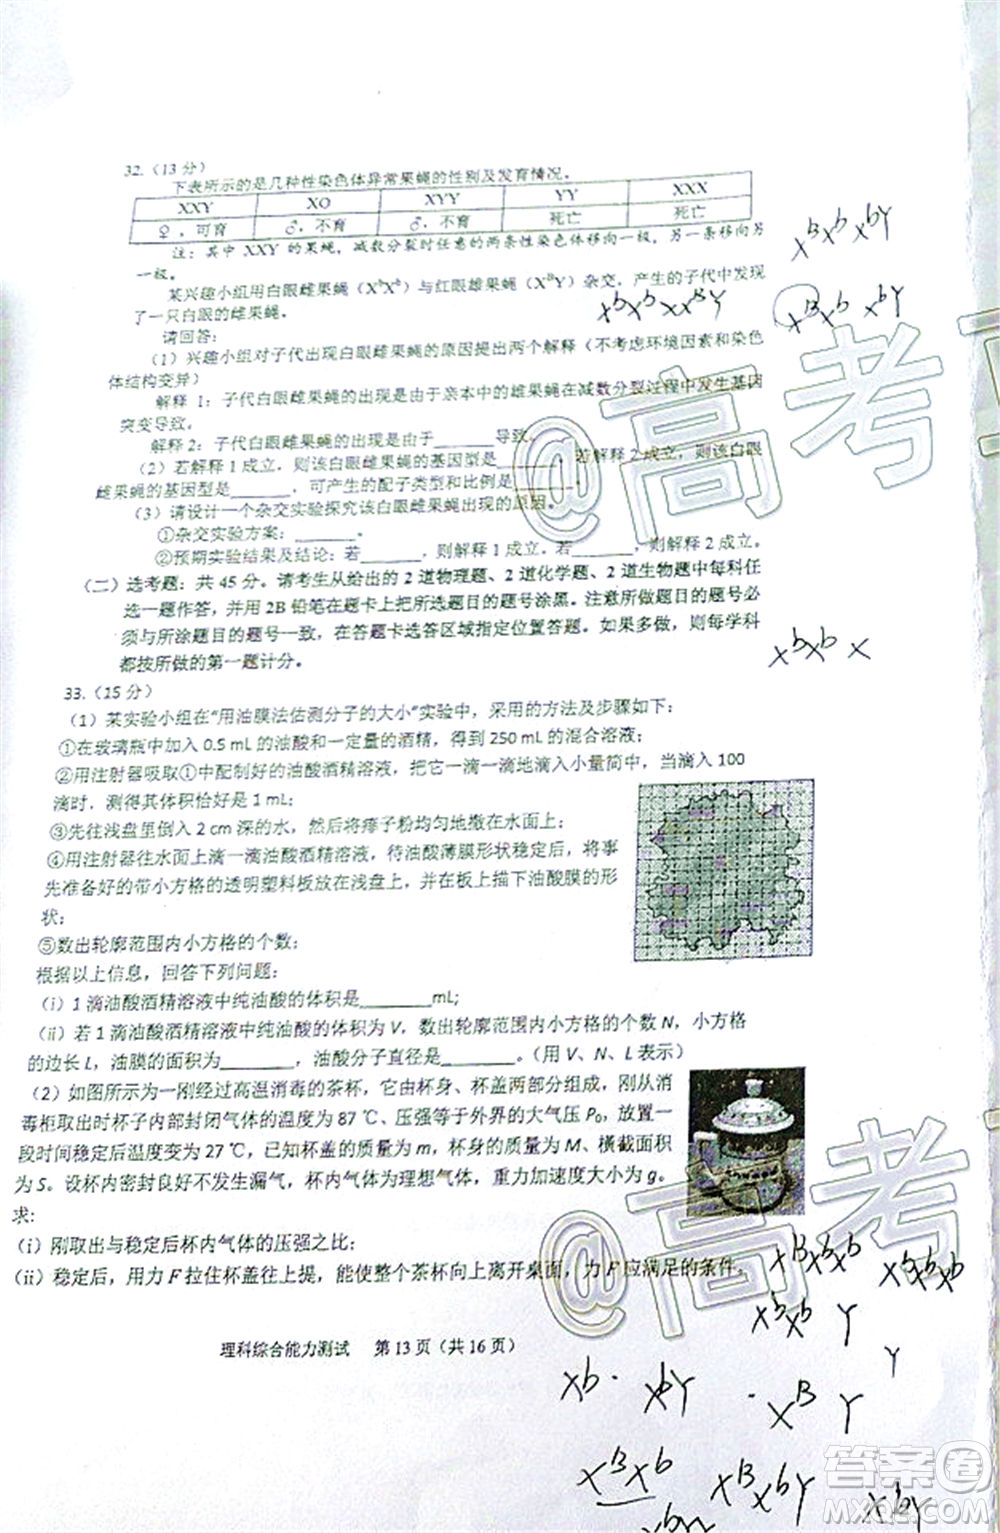 32.（13 分）
下表所示的是几种性染色体异常果蝇的性别及发育情况。
XXY XO XYY YY XXX
♀，可育 ♂，不育 ♂，不育 死亡 死亡
注：其中 XXY 的果蝇，减数分裂时任意的两条性染色体移向一极，另一条移向另
一极。
某兴趣小组用白眼雌果蝇（XᵇXᵇ）与红眼雄果蝇（XᴮY）杂交，产生的子代中发现
了一只白眼的雌果蝇。
请回答：
（1）兴趣小组对子代出现白眼雌果蝇的原因提出两个解释（不考虑环境因素和染色
体结构变异）
解释 1：子代白眼雌果蝇的出现是由于亲本中的雄果蝇在减数分裂过程中发生基因
突变导致。
解释 2：子代白眼雌果蝇的出现是由于______导致。
（2）若解释 1 成立，则该白眼雌果蝇的基因型是______，若解释 2 成立，则该白眼
雌果蝇的基因型是______，可产生的配子类型和比例是______。
（3）请设计一个杂交实验探究该白眼雌果蝇出现的原因。
①杂交实验方案：______。
②预期实验结果及结论：若______，则解释 1 成立，若______，则解释 2 成立。
（二）选考题：共 45 分。请考生从给出的 2 道物理题、2 道化学题、2 道生物题中每科任
选一题作答，并用 2B 铅笔在题卡上把所选题目的题号涂黑。注意所做题目的题号必
须与所涂题目的题号一致，在答题卡选答区域指定位置答题。如果多做，则每学科
都按所做的第一题计分。
33.（15 分）
（1）某实验小组在“用油膜法估测分子的大小”实验中，采用的方法及步骤如下：
①在玻璃瓶中加入 0.5 mL 的油酸和一定量的酒精，得到 250 mL 的混合溶液；
②用注射器吸取①中配制好的油酸酒精溶液，把它一滴一滴地滴入小量筒中，当滴入 100
滴时，测得其体积恰好是 1 mL；
③先往浅盘里倒入 2 cm 深的水，然后将痱子粉均匀地撒在水面上；
④用注射器往水面上滴一滴油酸酒精溶液，待油酸薄膜形状稳定后，将事
先准备好的带小方格的透明塑料板放在浅盘上，并在板上描下油酸膜的形
状；
⑤数出轮廓范围内小方格的个数；
根据以上信息，回答下列问题：
（i）1 滴油酸酒精溶液中纯油酸的体积是______mL；
（ii）若 1 滴油酸酒精溶液中纯油酸的体积为 V，数出轮廓范围内小方格的个数 N，小方格
的边长 L，油膜的面积为______，油酸分子直径是______。（用 V、N、L 表示）
（2）如图所示为一刚经过高温消毒的茶杯，它由杯身、杯盖两部分组成，刚从消
毒柜取出时杯子内部封闭气体的温度为 87 ℃、压强等于外界的大气压 P₀，放置一
段时间稳定后温度变为 27 ℃，已知杯盖的质量为 m，杯身的质量为 M、横截面积
为 S。设杯内密封良好不发生漏气，杯内气体为理想气体，重力加速度大小为 g。
求：
（i）刚取出与稳定后杯内气体的压强之比；
（ii）稳定后，用力 F 拉住杯盖往上提，能使整个茶杯向上离开桌面，力 F 应满足的条件。
理科综合能力测试 第 13 页（共 16 页）
XᴮXᵇ XᵇY
XᵇXᵇ XᴮY
XᴮXᵇ XᵇY
XᵇXᵇ X
@高考
@高考
XᵇXᵇ Y
Xᵇ · XᵇY · Xᴮ Y
XᴮXᵇ XᴮXᵇY XᵇY
答案圈
MXQE.COM